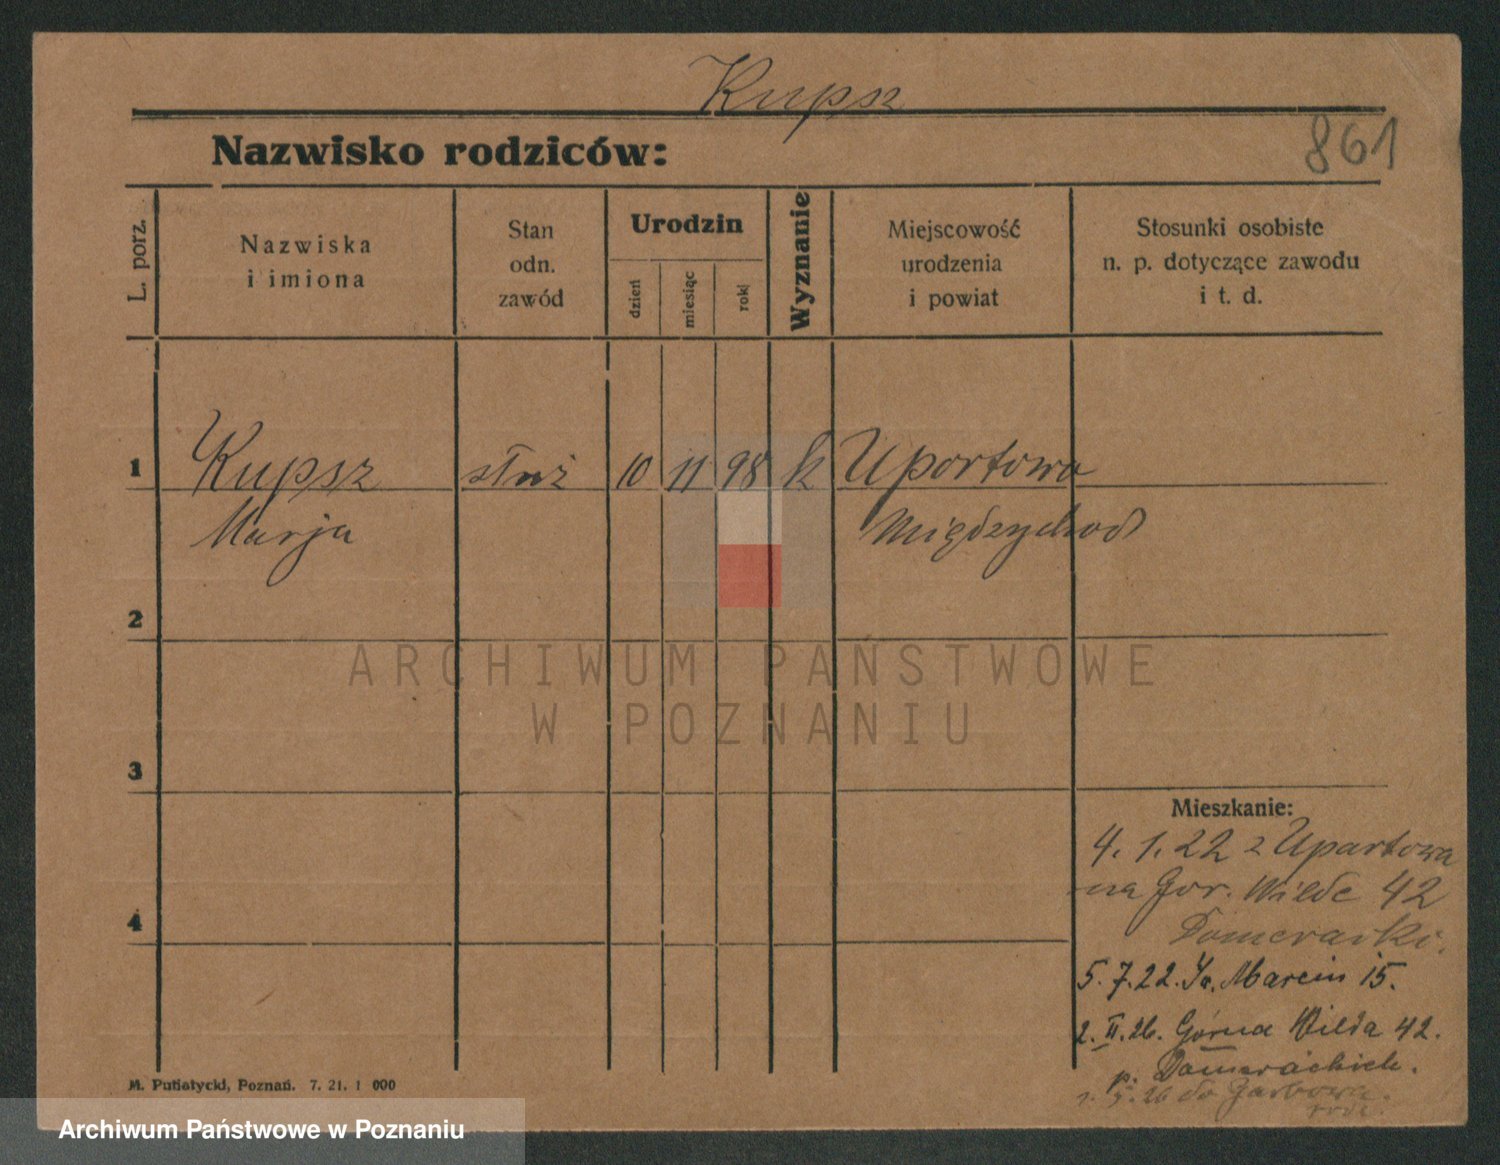 Kupsz
Nazwisko rodziców:
861
L. porz.
Nazwiska
i imiona
Stan
odn.
zawód
Urodzin
dzień
miesiąc
rok
Wyznanie
Miejscowość
urodzenia
i powiat
Stosunki osobiste
n. p. dotyczące zawodu
i t. d.
1 Kupsz służ 10 11 98 k Uportowo
Marja Międzychod
2
3
4
Mieszkanie:
4.1.22 z Upartowa
na Gor. Wilde 42
5.7.22. Marcin 15.
2.II.26. Górna Wilda 42.
p.
26 do Garbowa
M. Putiatycki, Poznań. 7. 21. 1 000
ARCHIWUM PAŃSTWOWE
W POZNANIU
Archiwum Państwowe w Poznaniu